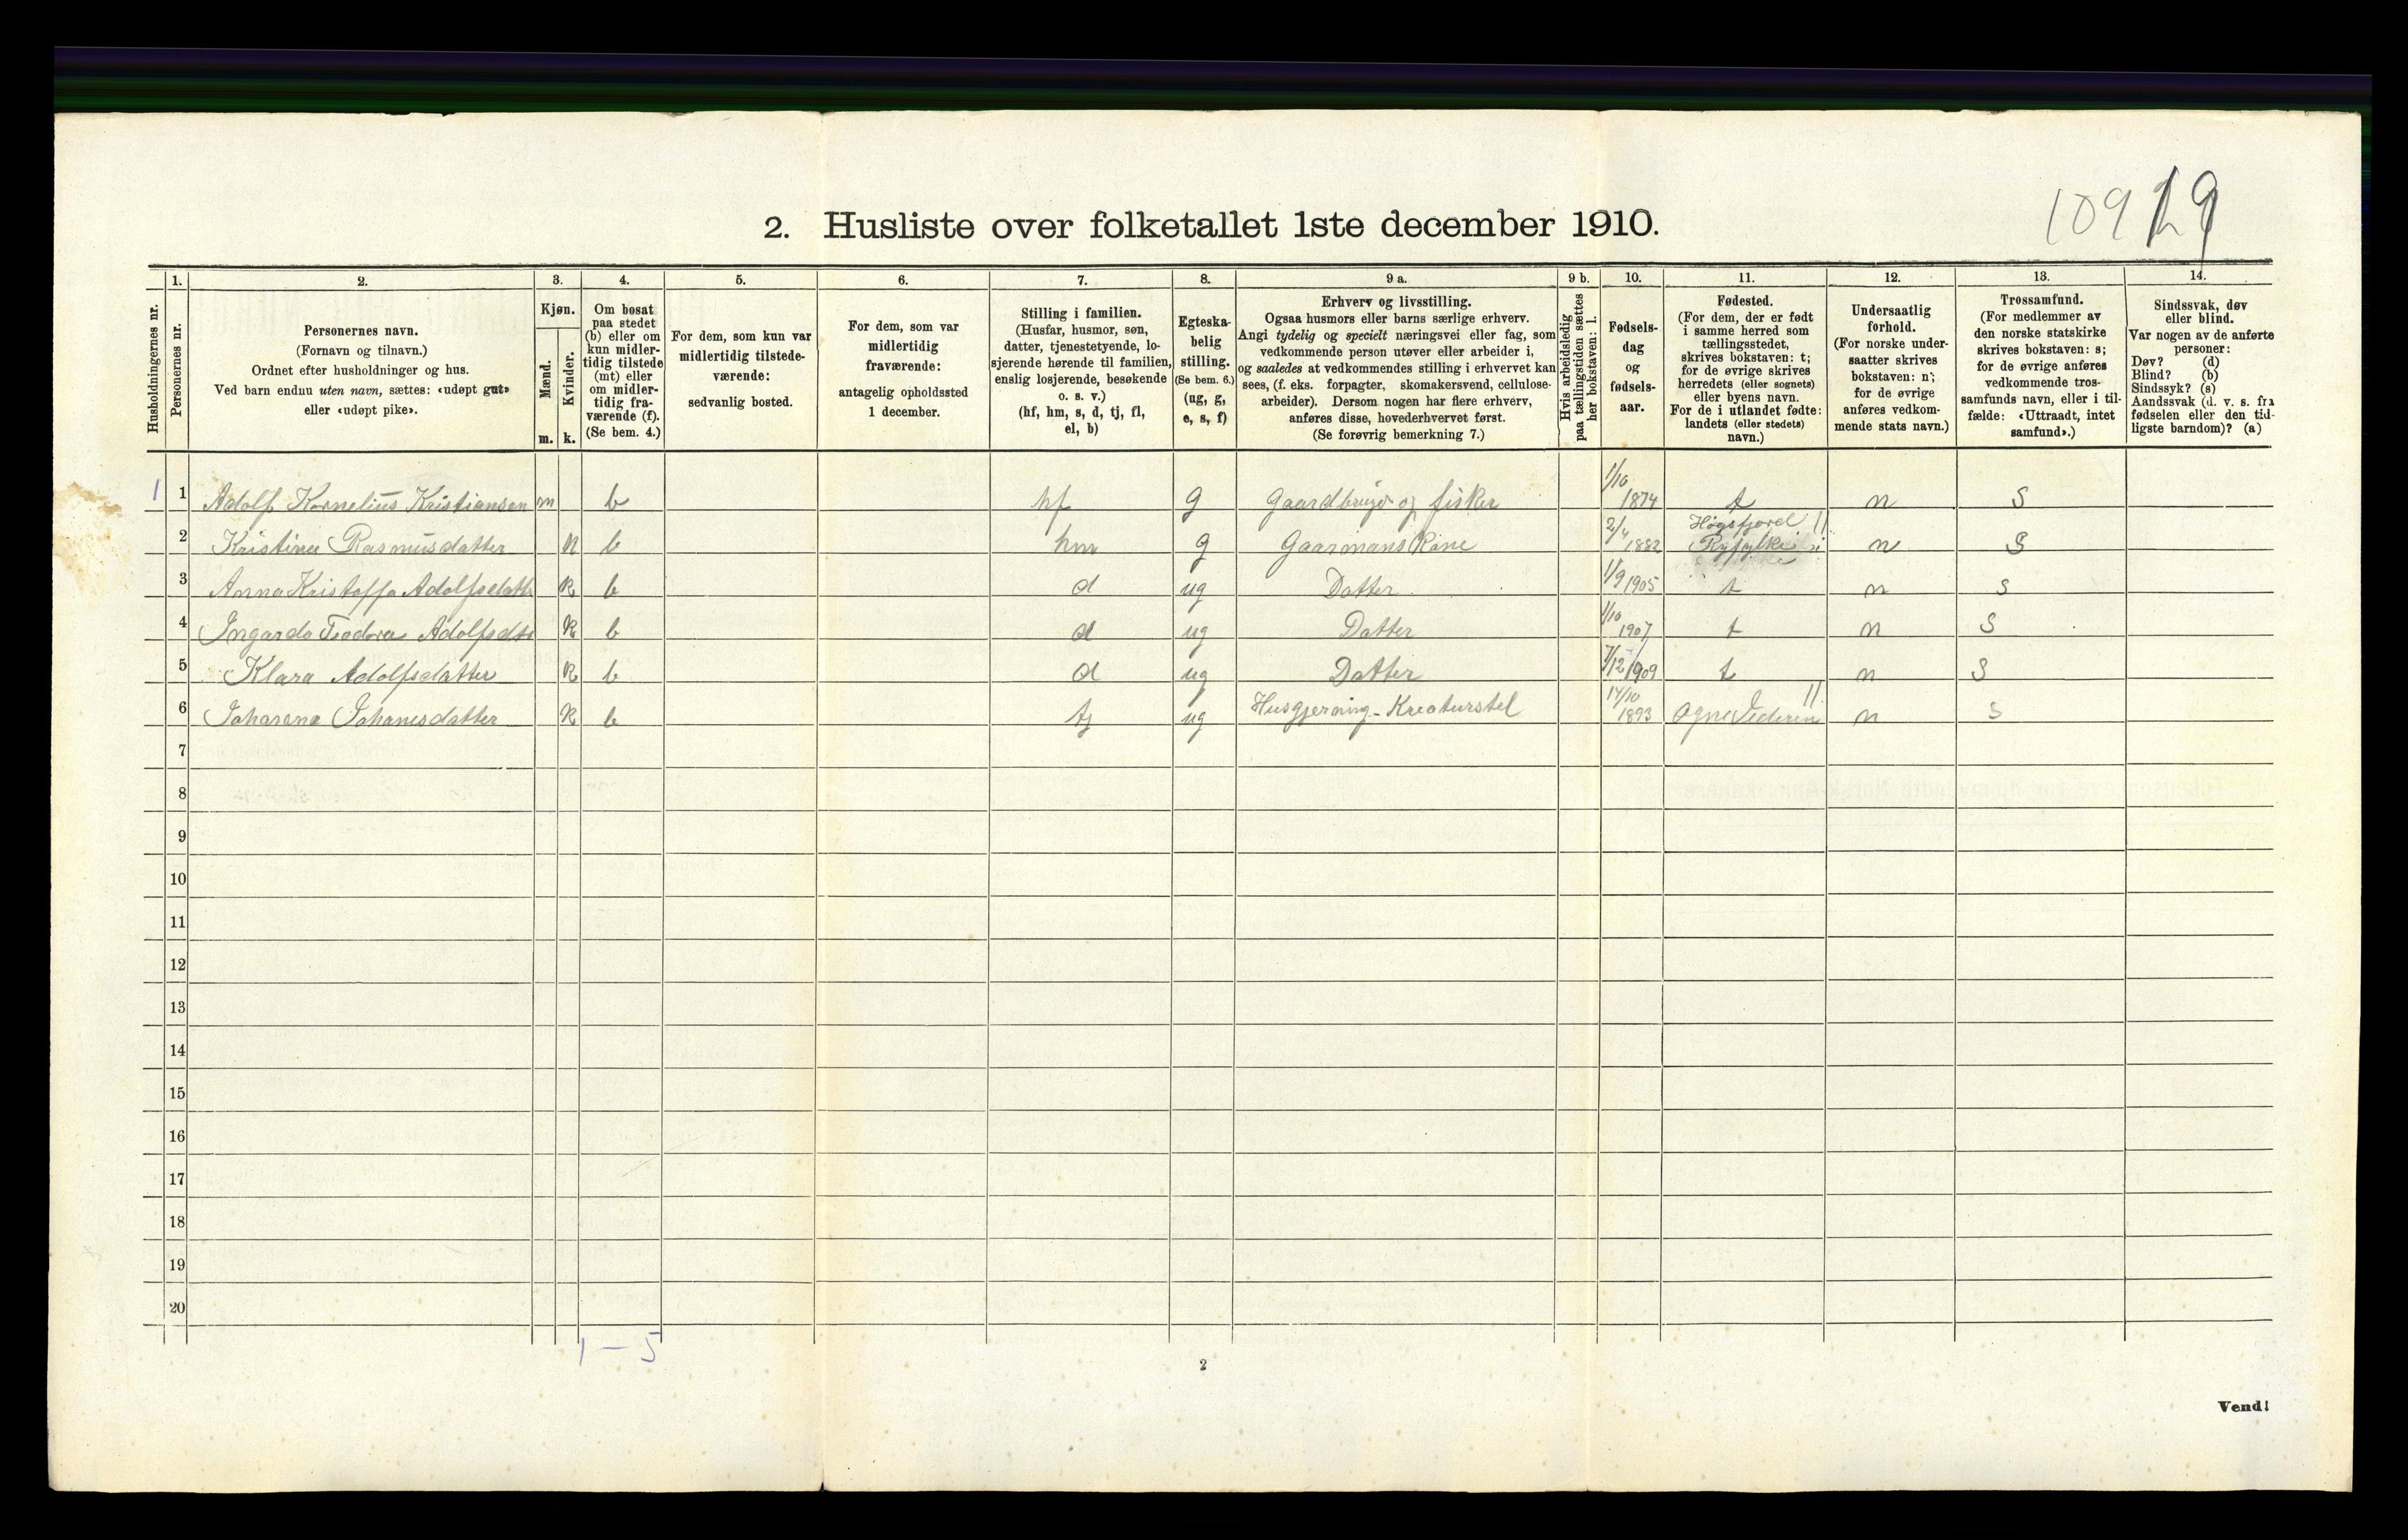 109 19
2. Husliste over folketallet 1ste december 1910.
Husholdningernes nr.
1.
Personernes nr.
2.
Personernes navn.
(Fornavn og tilnavn.)
Ordnet efter husholdninger og hus.
Ved barn endnu uten navn, sættes: «udøpt gut»
eller «udøpt pike».
3.
Kjøn.
Mænd.
Kvinder.
m. k.
4.
Om bosat
paa stedet
(b) eller om
kun midler-
tidig tilstede
(mt) eller
om midler-
tidig fra-
værende (f).
(Se bem. 4.)
5.
For dem, som kun var
midlertidig tilstede-
værende:
sedvanlig bosted.
6.
For dem, som var
midlertidig
fraværende:
antagelig opholdssted
1 december.
7.
Stilling i familien.
(Husfar, husmor, søn,
datter, tjenestetyende, lo-
sjerende hørende til familien,
enslig losjerende, besøkende
o. s. v.)
(hf, hm, s, d, tj, fl,
el, b)
8.
Egteska-
belig
stilling.
(Se bem. 6.)
(ug, g,
e, s, f)
9 a.
Erhverv og livsstilling.
Ogsaa husmors eller barns særlige erhverv.
Angi tydelig og specielt næringsvei eller fag, som
vedkommende person utøver eller arbeider i,
og saaledes at vedkommendes stilling i erhvervet kan
sees, (f. eks. forpagter, skomakersvend, cellulose-
arbeider). Dersom nogen har flere erhverv,
anføres disse, hovederhvervet først.
(Se forøvrig bemerkning 7.)
9 b.
Hvis arbeidsledig
paa tællingstiden sættes
her bokstaven: l.
10.
Fødsels-
dag
og
fødsels-
aar.
11.
Fødested.
(For dem, der er født
i samme herred som
tællingsstedet,
skrives bokstaven: t;
for de øvrige skrives
herredets (eller sognets)
eller byens navn.
For de i utlandet fødte:
landets (eller stedets)
navn.)
12.
Undersaatlig
forhold.
(For norske under-
saatter skrives
bokstaven: n;
for de øvrige
anføres vedkom-
mende stats navn.)
13.
Trossamfund.
(For medlemmer av
den norske statskirke
skrives bokstaven: s;
for de øvrige anføres
vedkommende tros-
samfunds navn, eller i til-
fælde: «Uttraadt, intet
samfund».)
14.
Sindssvak, døv
eller blind.
Var nogen av de anførte
personer:
Døv? (d)
Blind? (b)
Sindssyk? (s)
Aandssvak (d. v. s. fra
fødselen eller den tid-
ligste barndom)? (a)
1 1 Adolf Kornelius Kristiansen m b hf g Gaardbruger og fisker 1/10 1874 t n S
2 Kristine Rasmusdatter K b hm g Gaarmans Kone 2/4 1882 Høgsfjord Ryfylke n S
3 Anna Kristoffa Adolfsdatte K b d ug Datter 1/9 1905 t n S
4 Ingarda Teodora Adolfsdtr K b d ug Datter 1/10 1907 t n S
5 Klara Adolfsdatter K b d ug Datter 7/12 1909 t n S
6 Joharene Johanesdatter K b tj ug Husgjerning - Kreaturstel 14/10 1893 Ogne Jederen n S
7
8
9
10
11
12
13
14
15
16
17
18
19
20
1 — 5
2
Vend!